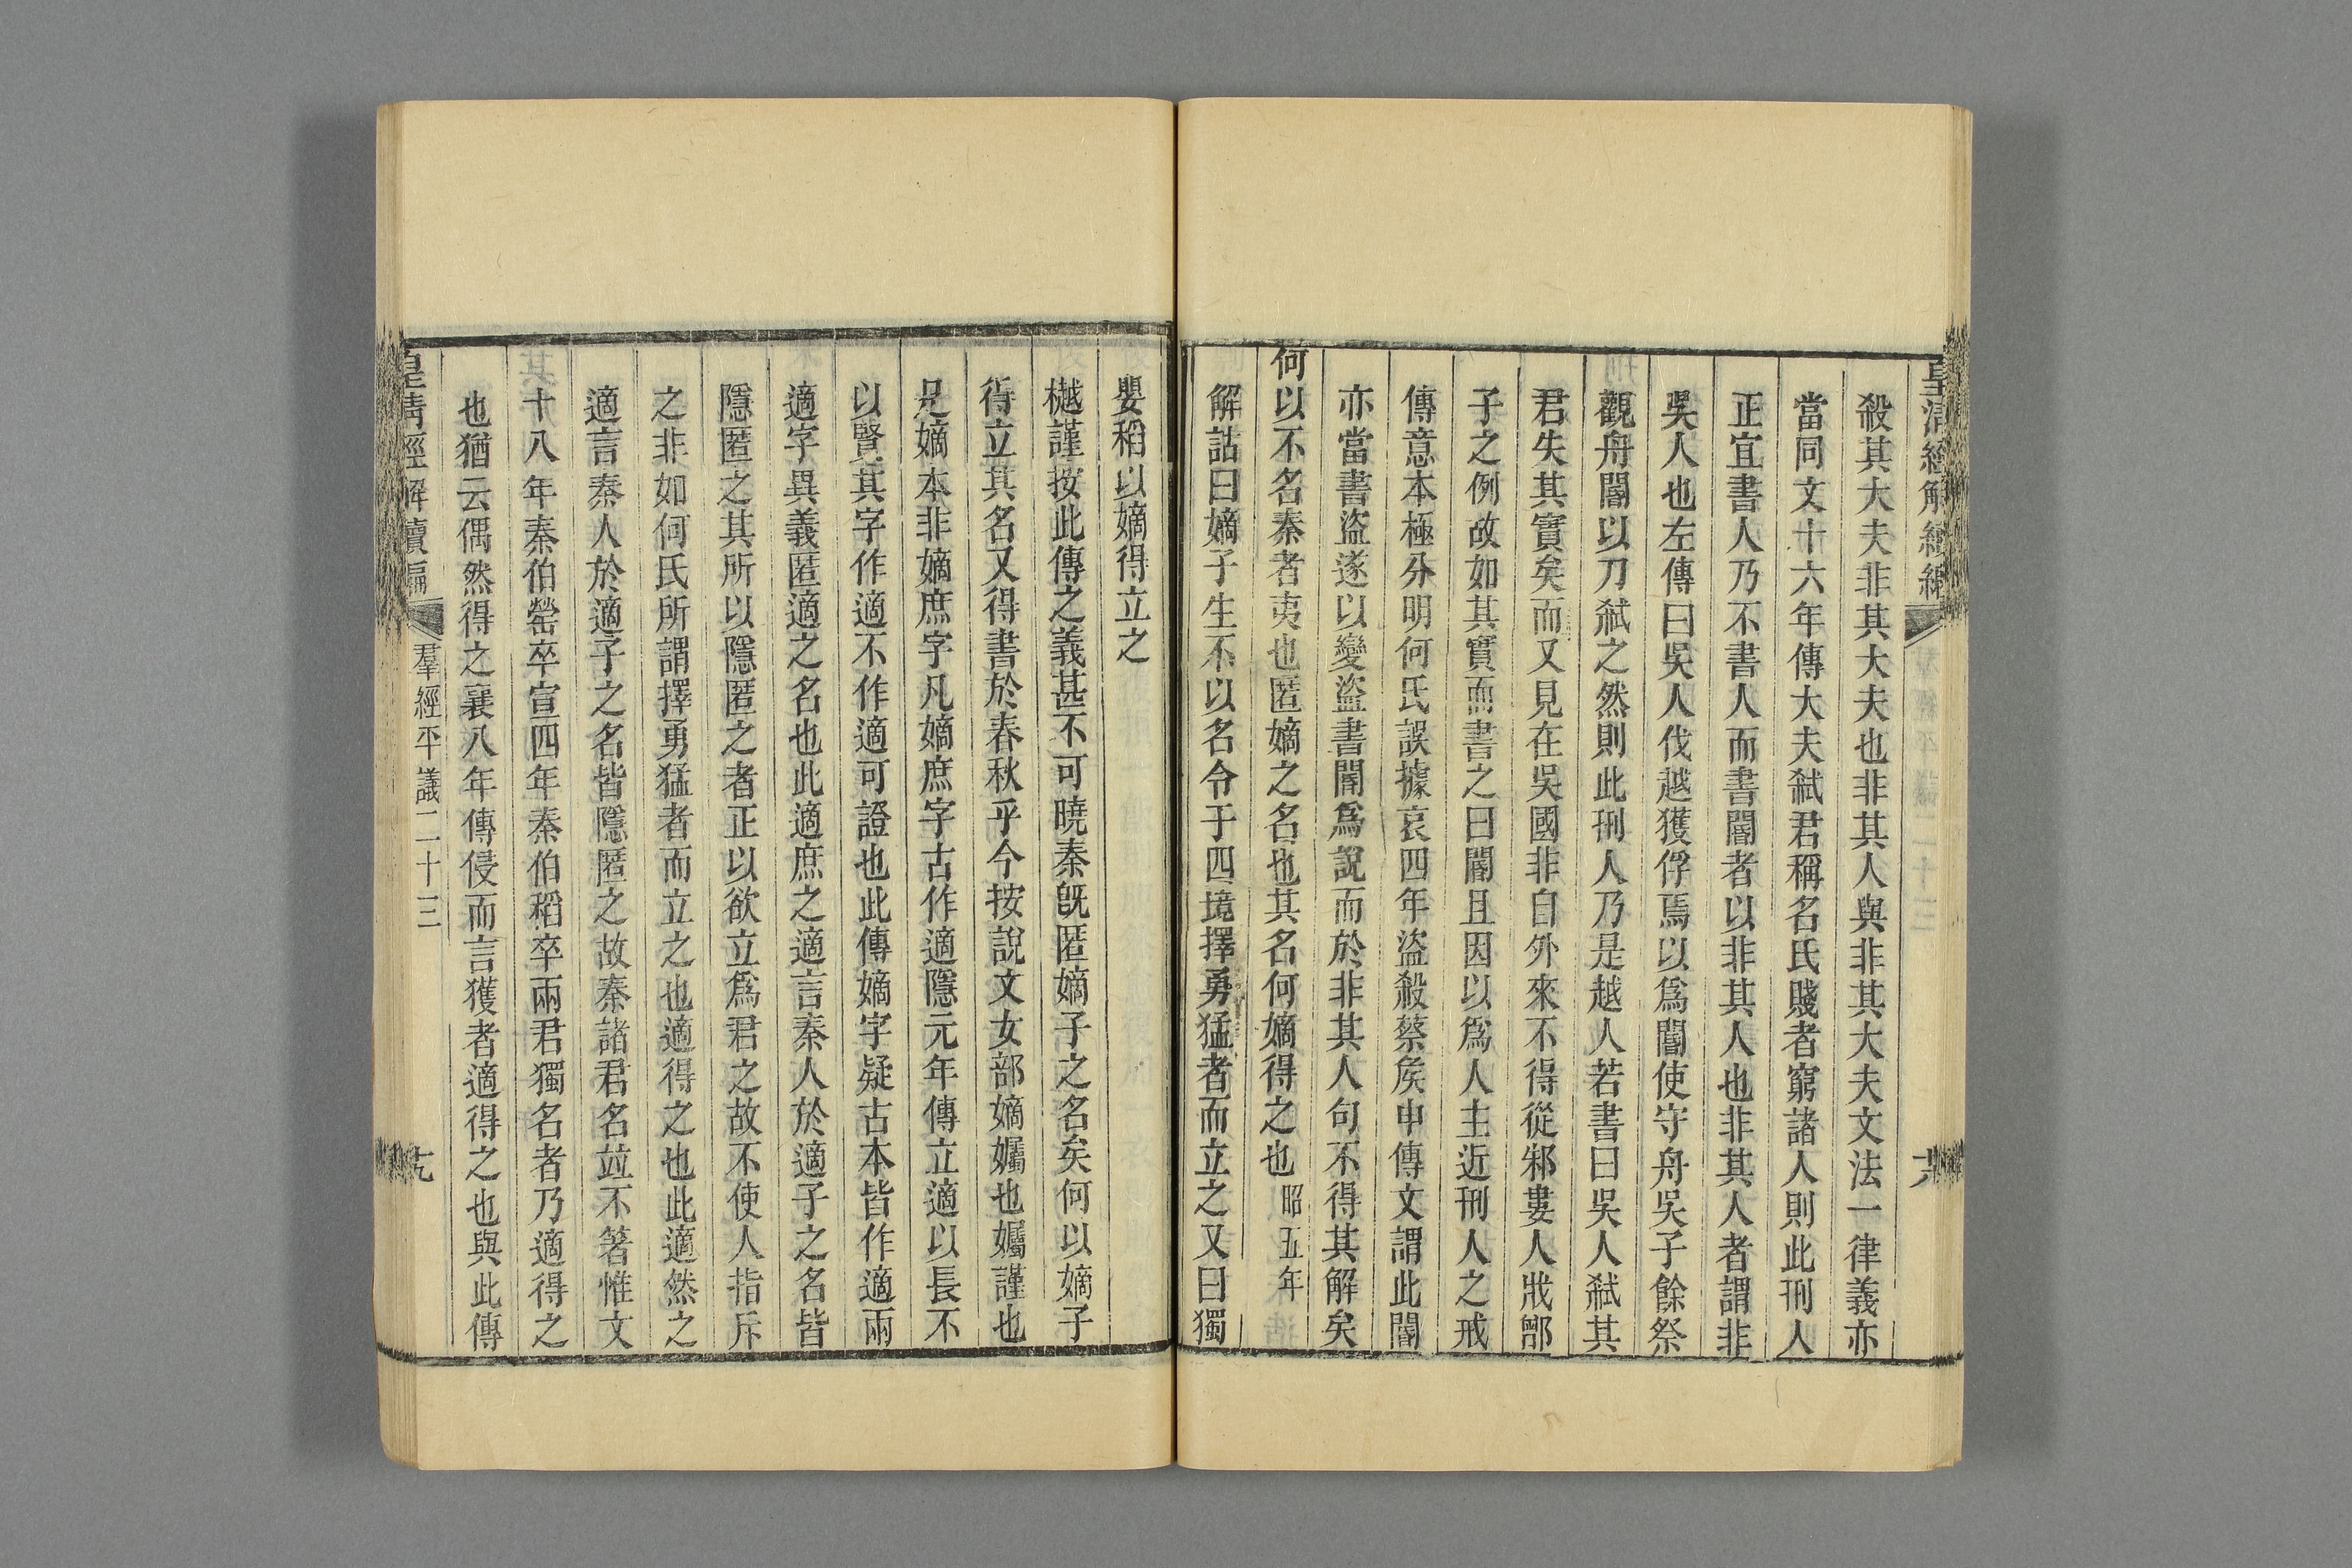 皇清經解續編
殺其大夫非其大夫也非其人與非其大夫文法一律義亦
當同文十六年傳大夫弒君稱名氏賤者窮諸人則此刑人
正宜書人乃不書人而書閽者以非其人也非其人者謂非
吳人也左傳曰吳人伐越獲俘焉以爲閽使守舟吳子餘祭
觀舟閽以刀弒之然則此刑人乃是越人若書曰吳人弒其
君失其實矣而又見在吳國非自外來不得從邾婁人戕鄫
子之例故如其實而書之曰閽且因以爲人主近刑人之戒
傳意本極分明何氏誤據哀四年盜殺蔡矦申傳文謂此閽
亦當書盜遂以變盜書閽爲說而於非其人句不得其解矣
何以不名秦者夷也匿嫡之名也其名何嫡得之也昭五年
解詁曰嫡子生不以名令于四境擇勇猛者而立之又曰獨
嬰稻以嫡得立之
樾謹按此傳之義甚不可曉秦旣匿嫡子之名矣何以嫡子
得立其名又得書於春秋乎今按說文女部嫡孎也孎謹也
是嫡本非嫡庶字凡嫡庶字古作適隱元年傳立適以長不
以賢其字作適不作適可證也此傳嫡字疑古本皆作適兩
適字異義匿適之名也此適庶之適言秦人於適子之名皆
隱匿之其所以隱匿之者正以欲立爲君之故不使人指斥
之非如何氏所謂擇勇猛者而立之也適得之也此適然之
適言秦人於適子之名皆隱匿之故秦諸君名竝不箸惟文
十八年秦伯罃卒宣四年秦伯稻卒兩君獨名者乃適得之
也猶云偶然得之襄八年傳侵而言獲者適得之也與此傳
皇清經解續編
羣經平議二十三